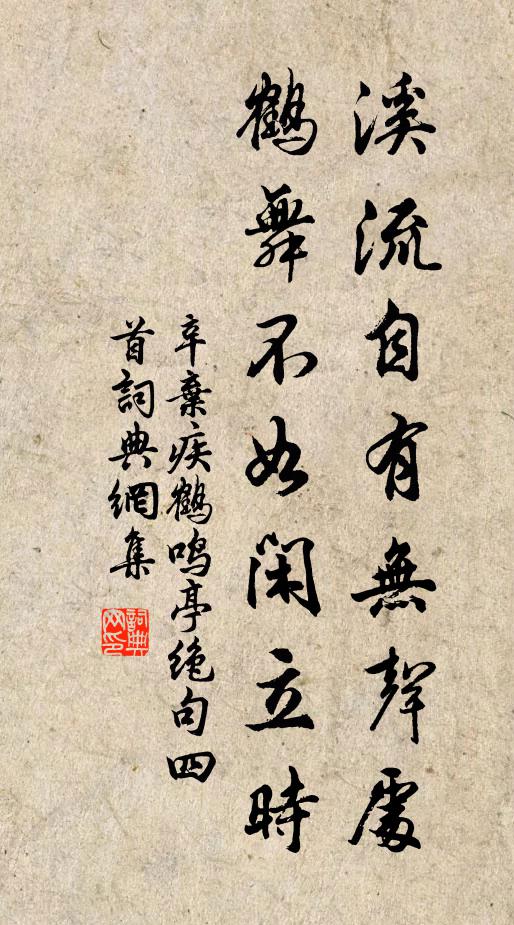 溪流自有無聲處
鶴舞不如閑立時
辛棄疾鶴鳴亭絶句四
首詞典網集
詞典
网印